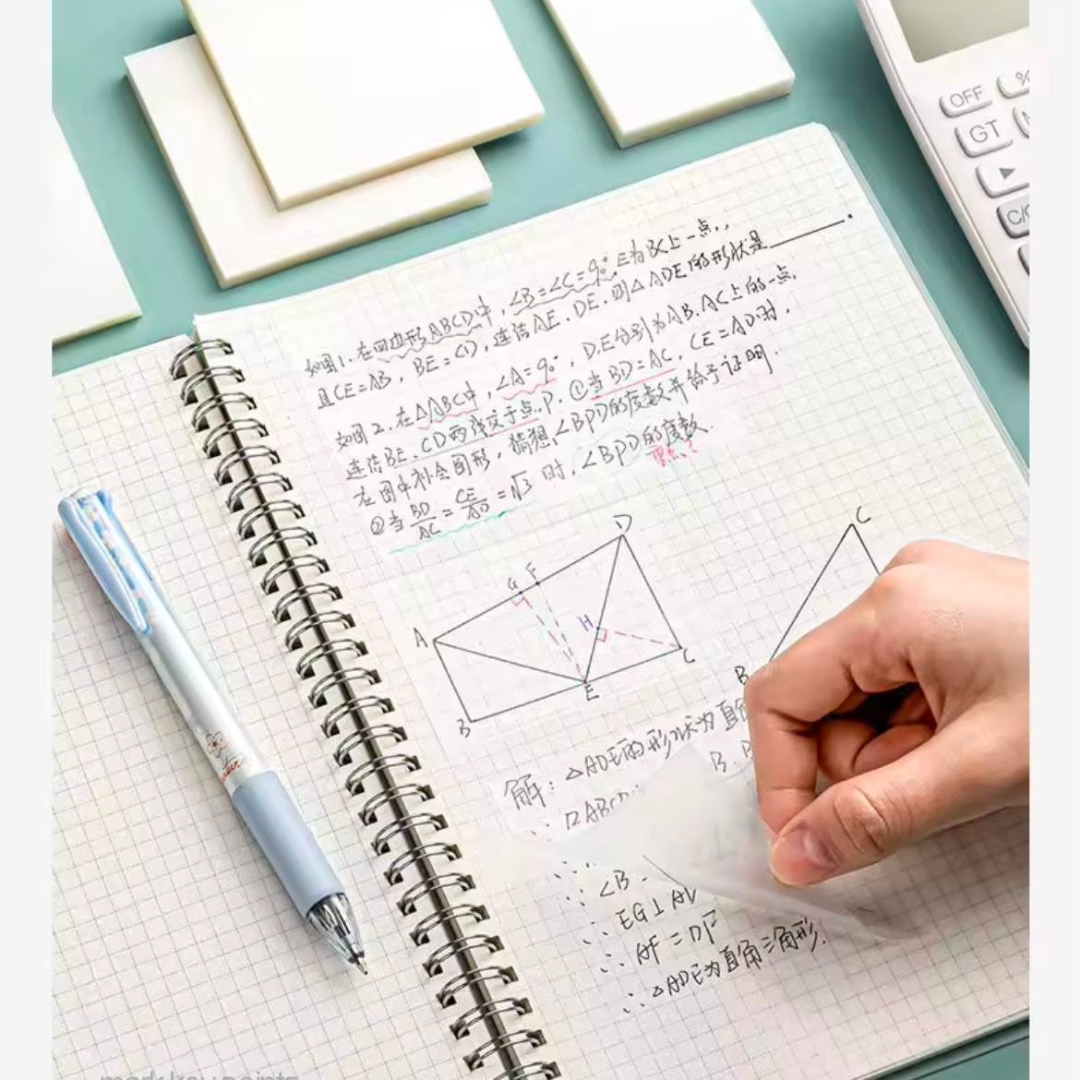 如图1.在四边形ABCD中,∠B=∠C=90°.E为BC上一点,
且CE=AB,BE=CD,连结AE、DE.则△ADE的形状是________.
如图2.在△ABC中,∠A=90°,D.E分别为AB.AC上的一点,
连结BE、CD两线交于点P.①当BD=AC,CE=AD时,
在图中补全图形,猜想∠BPD的度数并给予证明.
②当BD/AC=CE/AD=√3时,∠BPD的度数.
A
B
G
F
D
H
E
C
C
B
解:△ADE的形状为直角
∵ ABCD
∠B
∴ EG⊥AD
∴ AF=DF
∴△ADE为直角三角形.
OFF
%
GT
C/
mark key points